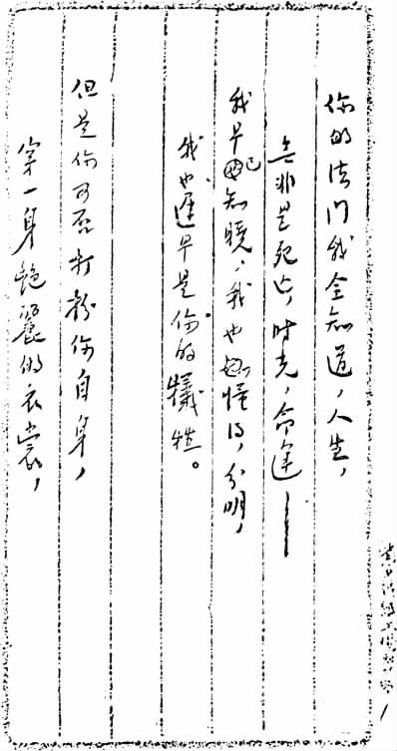 你的法门我全知道，人生，
无非是死亡，时光，命運——
我早已知曉，我也懂得，分明，
我也遲早是你的犧牲。
但是你可否打扮你自身，
穿一身艳麗的衣裳，